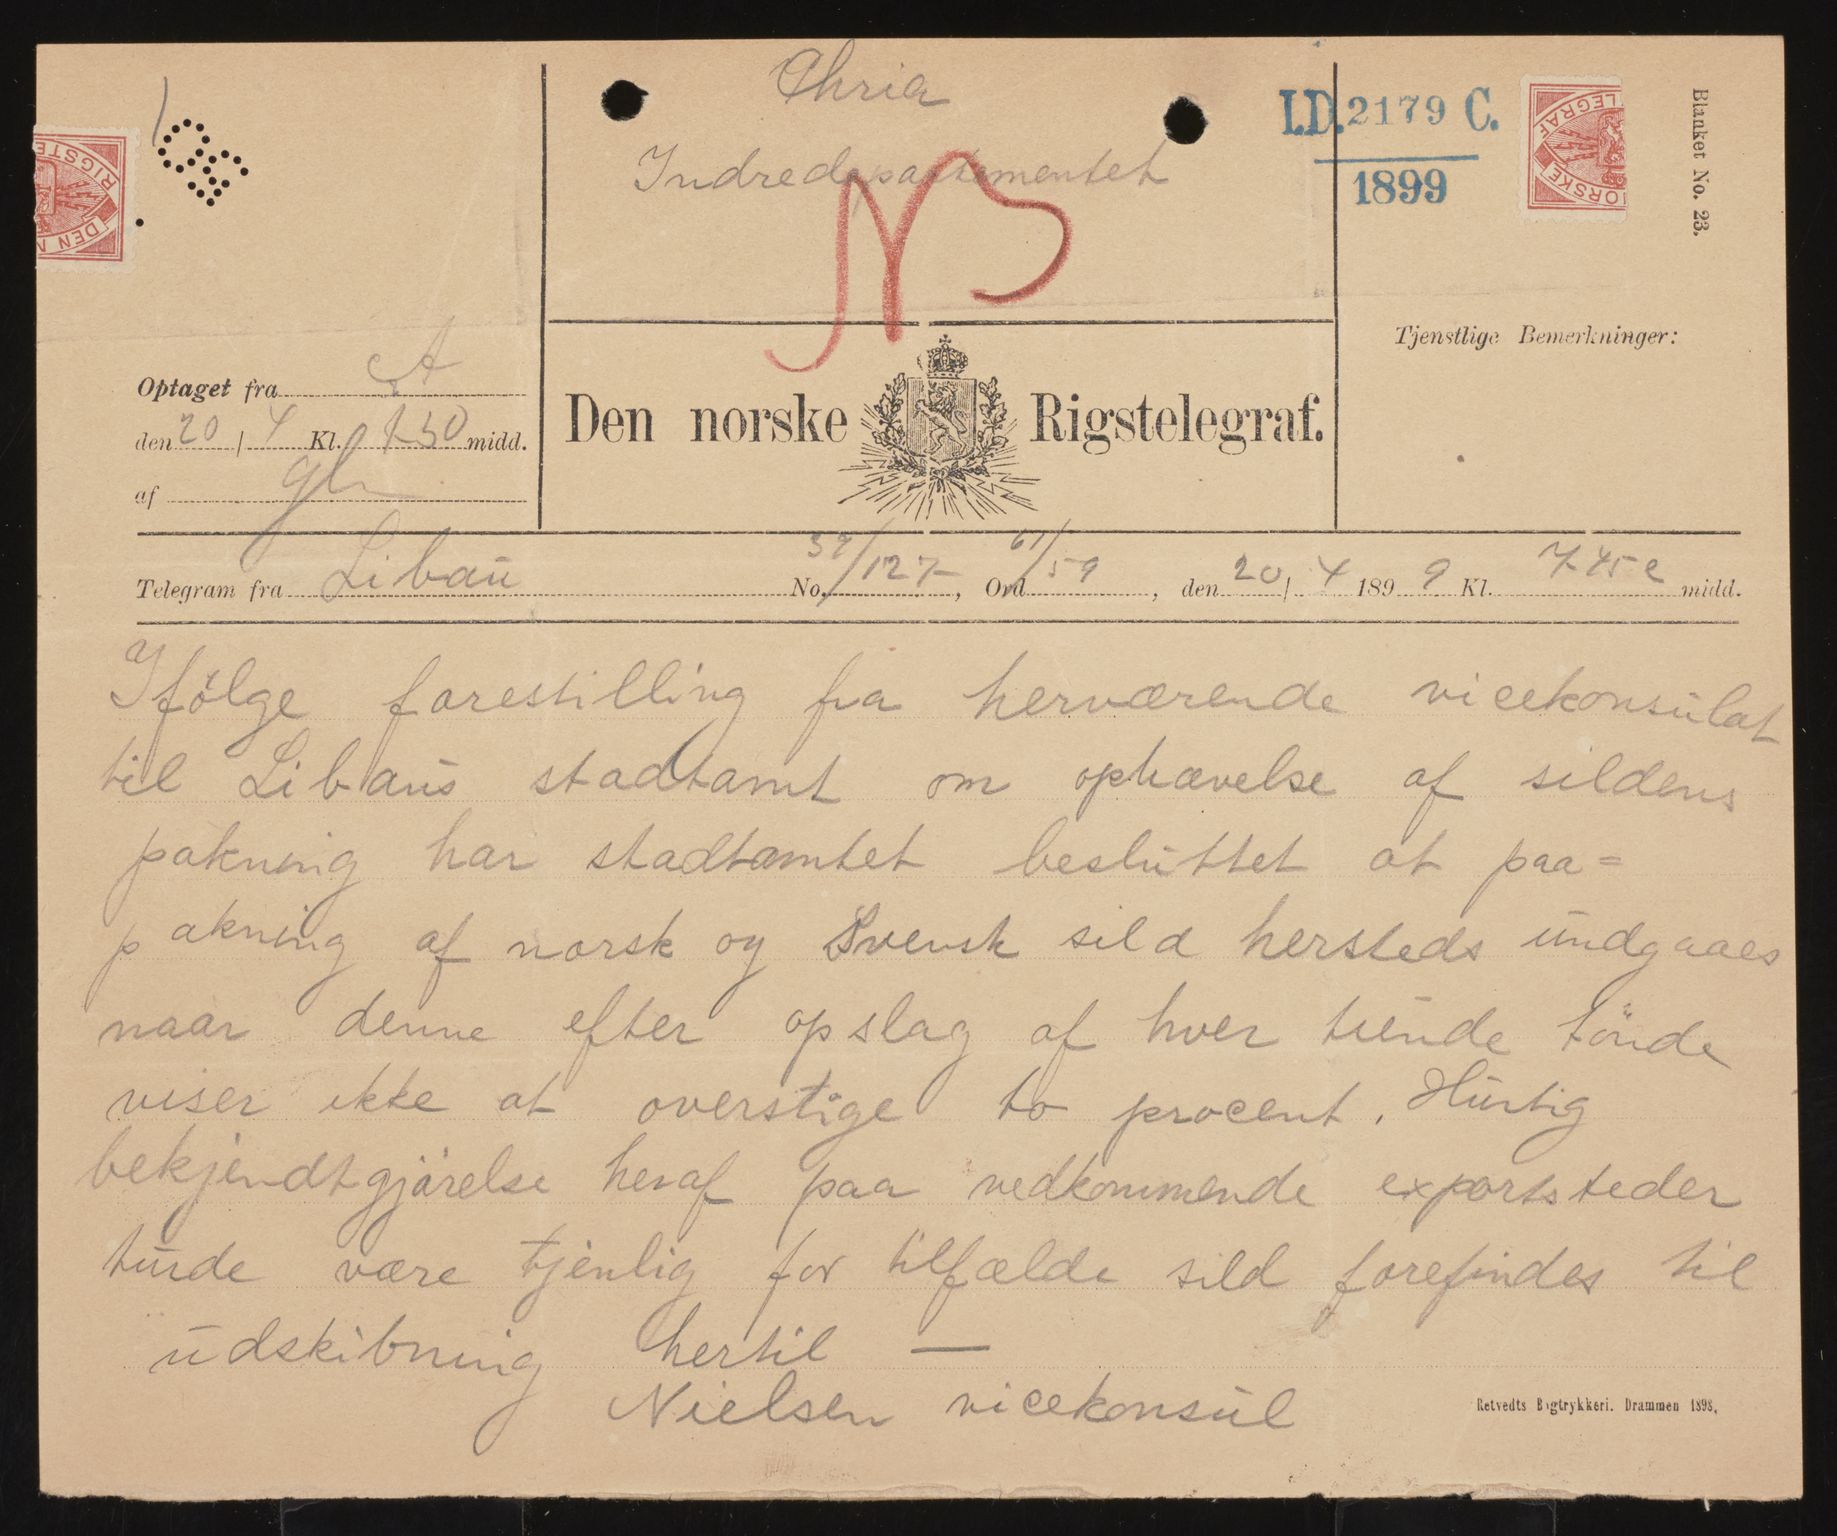 Chria
Indredepartementet
I.D. 2179 C.
1899
Blanket No. 23.
Tjenstlige Bemerkninger:
Optaget fra
den 20 / 4 Kl. 150 midd.
af
Den norske Rigstelegraf.
Telegram fra Libau No. 127, Ord 61/59, den 20 / 4 1899 Kl. 745 e midd.
Ifölge forestilling fra herværende vicekonsulat
til Libaus stadtamt om ophævelse af sildens
pakning har stadtamtet besluttet at paa=
pakning af norsk og Svensk sild hersteds undgaaes
naar denne efter opslag af hver tiende tönde
viser ikke at overstige to procent. Hurtig
bekjendtgjörelse heraf paa vedkommende exportsteder
turde være tjenlig for tilfælde sild forefindes til
udskibning hertil —
Nielsen vicekonsul
Retvedts Bogtrykkeri. Drammen 1898.